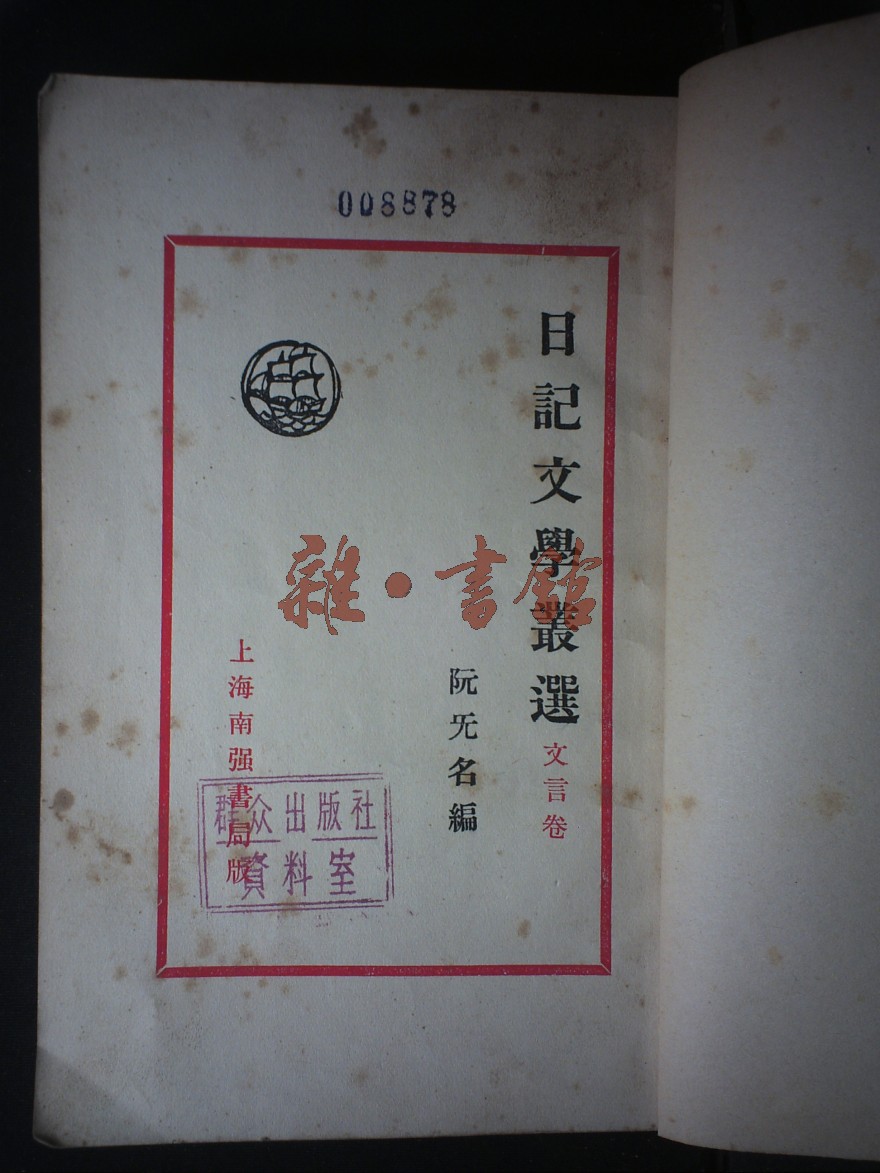 008878
日記文學叢選
文言卷
阮旡名編
上海南强書局版
群众出版社
資料室
雜·書館